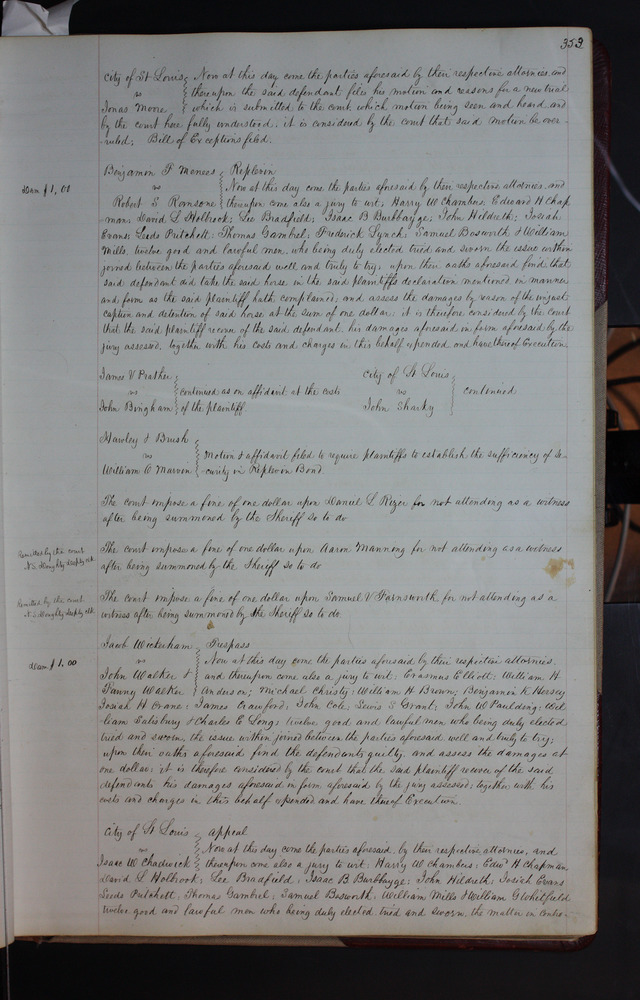 353
City of St Louis Now at this day come the parties aforesaid by their respective attornies, and
vs thereupon the said defendant files his motion and reasons for a new trial
Jonas Moore which is submitted to the court, which motion being seen and heard, and
by the court here fully understood; it is considered by the court that said motion be over-
ruled; Bill of Exceptions filed.
Benjamin F Menees Replevin
Dam $1,00
vs Now at this day come the parties aforesaid by their respective attornies, and
Robert S Ransone thereupon come also a jury to wit; Harry W Chambers; Edward H Chap
man; David L Holbrook; Lee Bradfield; Isaac B Burbbayge; John Hildreth; Josiah
Evans; Leeds Putchett; Thomas Gambrel; Frederick Lynch; Samuel Bosworth & William
Mills, twelve good and lawful men, who being duly elected tried and sworn the issue within
joined between the parties aforesaid well and truly to try; upon their oaths aforesaid find that
said defendant did take the said horse in the said plaintiffs declaration mentioned in manner
and form as the said plaintiff hath complained; and assess the damages by reason of the unjust
caption and detention of said horse at the sum of one dollar; it is therefore considered by the court
that the said plaintiff recover of the said defendant, his damages aforesaid in form aforesaid by the
jury assessed, together with his costs and charges in this behalf expended and have thereof Execution.
James V Prather City of St Louis
vs continued as on affidavit at the costs vs continued
John Bingham of the plaintiff. John Sharky
Hawley & Brush
vs Motion & affidavit filed to require plaintiffs to establish the sufficiency of Se-
William W Marvin curity in Replevin Bond
The court impose a fine of one dollar upon Daniel L. Rizer for not attending as a witness
after being summoned by the Sheriff so to do
Remitted by the court
The court impose a fine of one dollar upon Aaron Mannong for not attending as a witness
after being summoned by the Sheriff so to do
Remitted by the court
The court impose a fine of one dollar upon Samuel V Farnsworth for not attending as a
witness after being summoned by the Sheriff so to do.
Jacob Wickerham Trespass
Dam $1.00
vs Now at this day come the parties aforesaid by their respective attornies
John Walker & and thereupon come also a jury to wit; Erasmus Elliott; William H
Fanny Walker Anderson; Michael Christy; William H Brown; Benjamin K Hersey
Josiah H Crane; James Crawford; John Cole; Lewis S Grant; John W Paulding; Wil-
liam Salisbury & Charles E Long; twelve good and lawful men who being duly elected
tried and sworn, the issue within joined between the parties aforesaid well and truly to try;
upon their oaths aforesaid find the defendants guilty, and assess the damages at
one dollar; it is therefore considered by the court that the said plaintiff recover of the said
defendants his damages aforesaid in form aforesaid by the jury assessed; together with his
costs and charges in this behalf expended and have thereof Execution.
City of St Louis Appeal
vs Now at this day come the parties aforesaid, by their respective attornies, and
Isaac W Chadwick thereupon come also a jury to wit; Harry W Chambers; Edwd H Chapman,
David L Holbrook; Lee Bradfield; Isaac B. Burbbayge; John Hildreth; Josiah Evans
Leeds Putchett; Thomas Gambrel; Samuel Bosworth; William Mills & William G Whitfield
twelve good and lawful men who being duly elected, tried and sworn, the matter in contro-